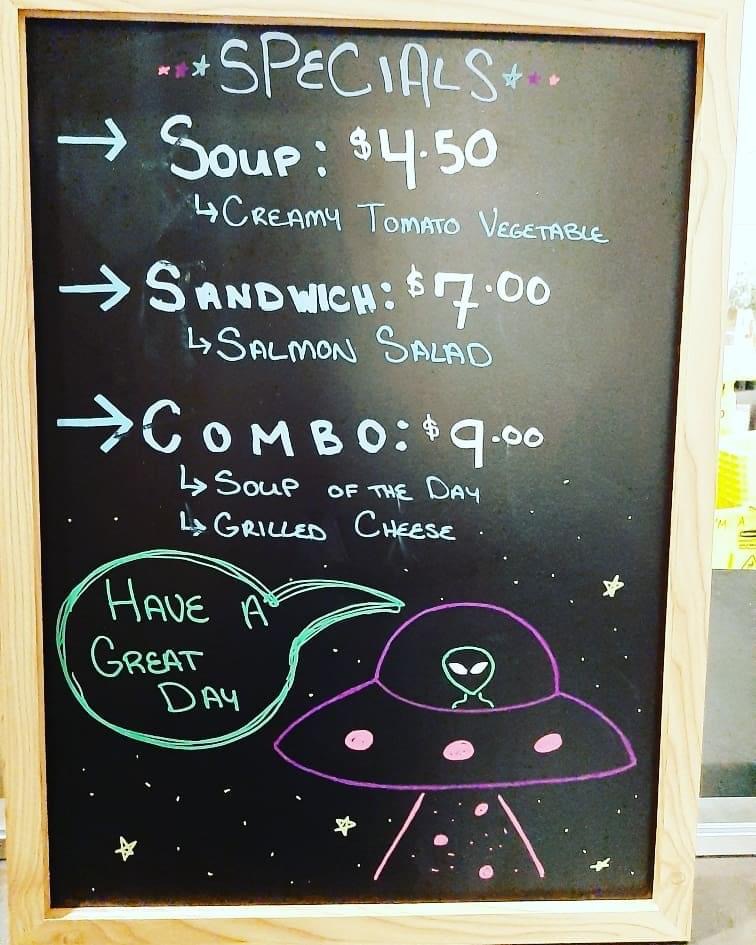 SPECIALS
→ SOUP: $4.50
↳ CREAMY TOMATO VEGETABLE
→ SANDWICH: $7.00
↳ SALMON SALAD
→ COMBO: $9.00
↳ SOUP OF THE DAY
↳ GRILLED CHEESE
HAVE A
GREAT
DAY